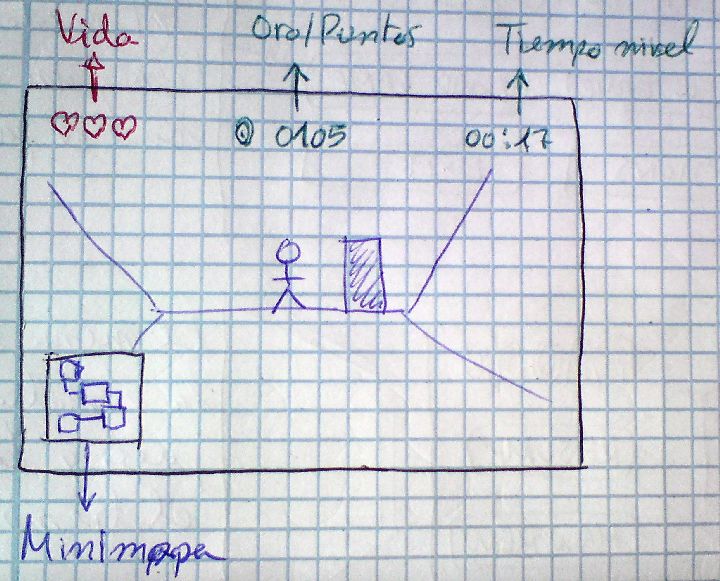 Vida
Oro/Puntos
Tiempo nivel
0105
00:17
Minimapa